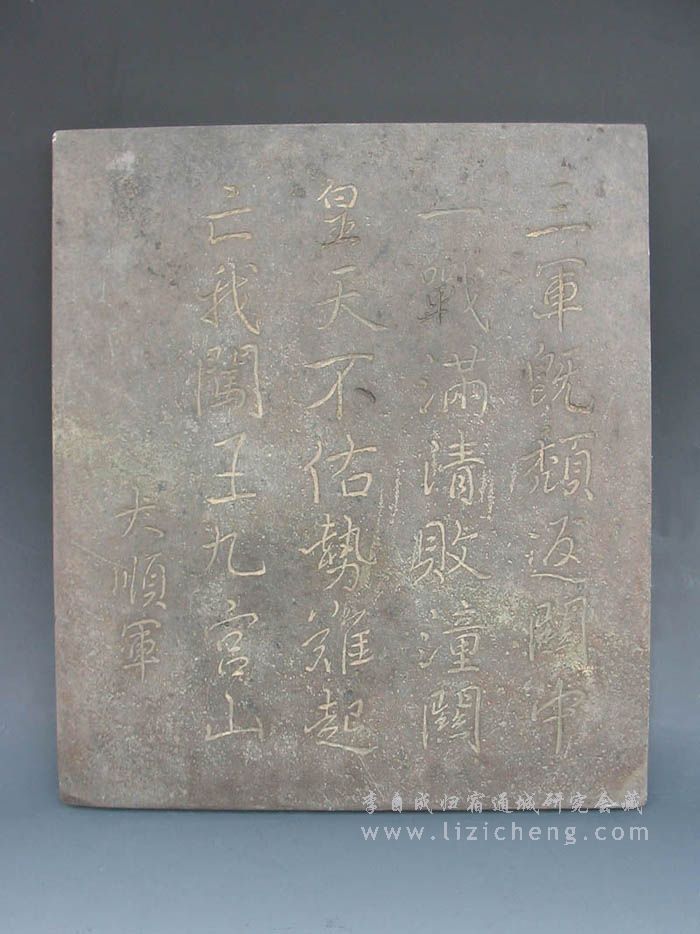 三軍既頹返關中
一戰滿清敗潼關
皇天不佑勢難起
亡我闖王九宮山
大順軍
李自成归宿通城研究会藏
www.lizicheng.com